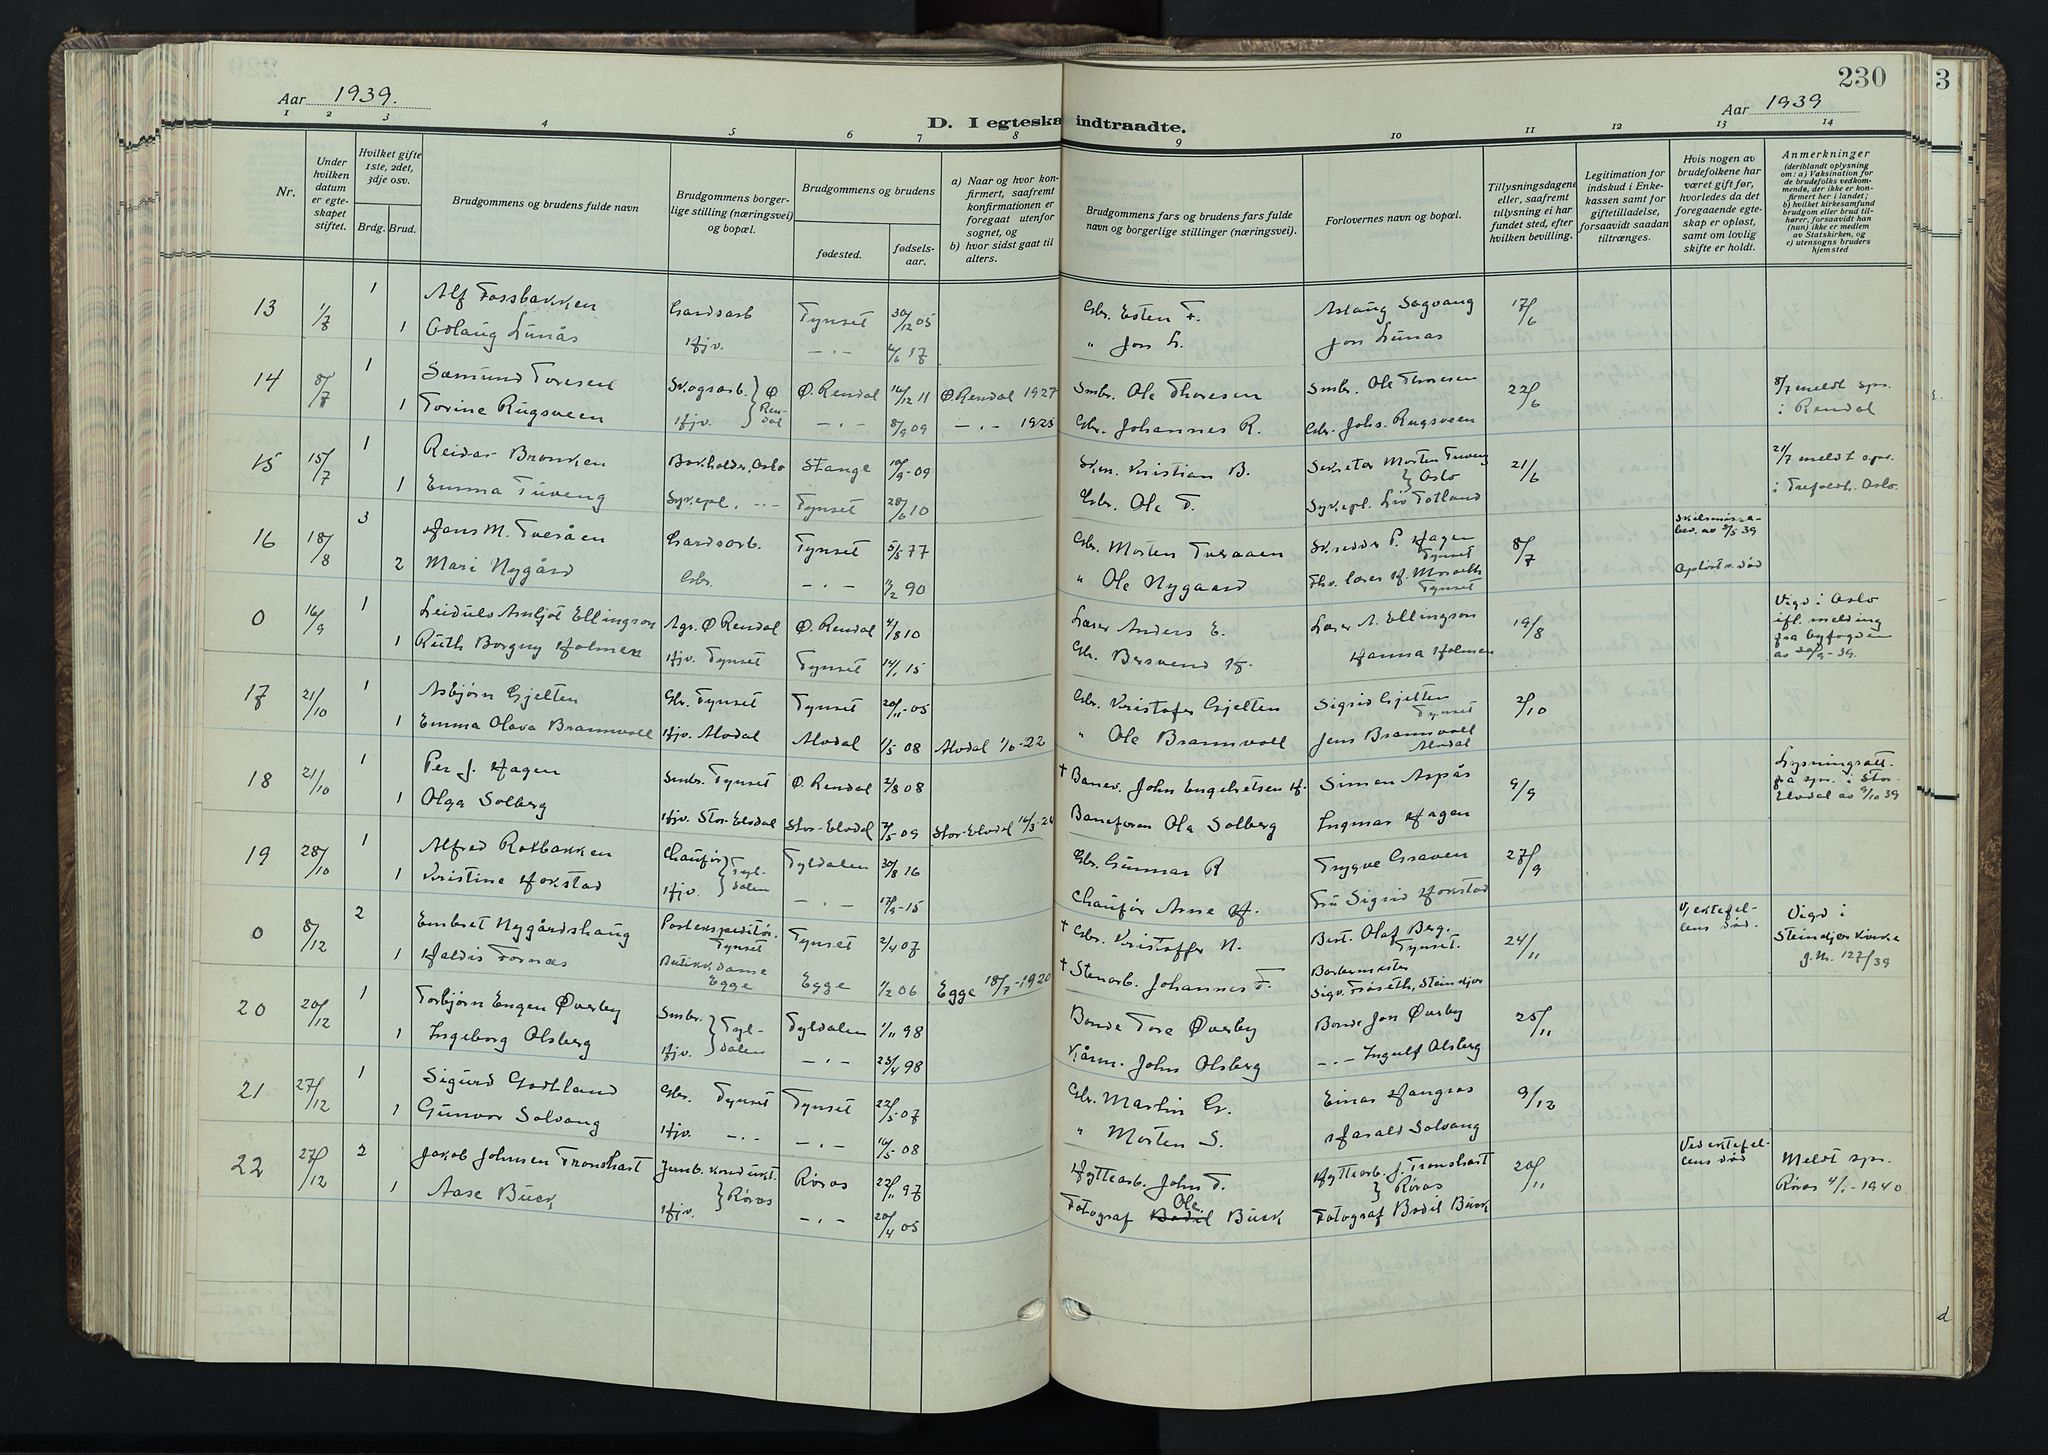 230
3
Aar 1939.
Aar 1939
D. I egteska indtraadte.
1 2 3 4 5 6 7 8 9 10 11 12 13 14
Nr.
Under hvilken datum er egte- skapet stiftet.
Hvilket gifte 1ste, 2det, 3dje osv.
Brdg. Brud.
Brudgommens og brudens fulde navn
Brudgommens borger- lige stilling (næringsvei) og bopæl.
Brudgommens og brudens
fødested.
fødsels- aar.
a) Naar og hvor kon- firmert, saafremt konfirmationen er foregaat utenfor sognet, og b) hvor sidst gaat til alters.
Brudgommens fars og brudens fars fulde navn og borgerlige stillinger (næringsvei).
Forlovernes navn og bopæl.
Tillysningsdagene eller, saafremt tillysning ei har fundet sted, efter hvilken bevilling.
Legitimation for indskud i Enke- kassen samt for giftetilladelse, forsaavidt saadan tiltrænges.
Hvis nogen av brudefolkene har været gift før, hvorledes da det foregaaende egte- skap er opløst, samt om lovlig skifte er holdt.
Anmerkninger (deriblandt oplysning om: a) Vaksination for de brudefolks vedkom- mende, der ikke er kon- firmert her i landet; b) hvilket kirkesamfund brudgom eller brud til- hører, forsaavidt han (hun) ikke er medlem av Statskirken, og c) utensogns bruders hjemsted
13 1/7 1 Alf Fossbakken Gardsarb Tynset 30/12 05 Gbr. Esten F. Aslaug Sagvang 17/6
1 Odlaug Lunås Hjv. — " — 4/6 17 " Jon L. Jon Lunås
14 8/7 1 Sæmund Toresen Skogsarb. Ø Ren- dal Ø. Rendal 16/12 11 Ø. Rendal 1927 Smbr. Ole Thoresen Smbr. Ole Thoresen 22/6 8/7 meldt spr. i Rendal
1 Torine Rugsveen Hjv. — " — 8/9 09 — " — 1925 Gbr. Johannes R. Gbr. Johs. Rugsveen
15 15/7 1 Reidar Bronken Bokholder, Oslo Stange 10/9 -09 Kristian B. Sekretær Morten Tuveng Oslo 21/6 21/7 meldt spr. i Trefoldh. Oslo.
1 Emma Tuveng Sykepl. — " — Tynset 28/6 10 Gbr. Ole T. Sykepl. Liv Totland
16 18/8 3 Hans M. Tveråen Gardsarb. Tynset 5/5 77 Gbr. Morten Tveraaen Skredder P. Hagen Tynset 8/7 Skilsmisse- bev. av 3/5 39
2 Mari Nygård Gbr. — " — 11/2 90 " Ole Nygaard Fhv. lærer H. Moseth Tynset Opløst v. død
0 16/9 1 Leidulv Arnljot Ellingson Agr. Ø Rendal Ø. Rendal 4/8 10 Lærer Anders E. Lærer A. Ellingson 19/8 Vigd i Oslo ifl. melding fra byfogden av 20/9 -39.
1 Ruth Borgny Holmen Hjv. Tynset Tynset 14/1 15 Gbr. Bersvend H. Hanna Holmen
17 21/10 1 Asbjørn Gjelten Gbr. Tynset Tynset 20/11 -05 Gbr. Kristofer Gjelten Sigrid Gjelten Tynset 2/10
1 Emma Olava Bramvoll Hjv. Alvdal Alvdal 1/5 08 Alvdal 1/6 -22 " Ole Bramvoll Jens Bramvoll Alvdal
18 21/10 1 Per J. Hagen Smbr. Tynset Ø. Rendal 2/8 08 † Banev. John Engebretsen H. Simen Aspås 9/9 Lysningsatt. fra spr. i Stor- Elvdal av 9/10 39
1 Olga Solberg Hjv. Stor-Elvdal Stor-Elvdal 7/5 -09 Stor-Elvdal 16/3 -24 Baneform Ola Solberg Ingmar Hagen
19 28/10 1 Alfred Rotbakken Chaufør Tyl- dalen Tyldalen 30/8 16 Gbr. Gunnar R Trygve Graven 27/9
1 Kristine Hokstad Hjv. — " — 17/9 -15 Chaufør Arne H. Fru Sigrid Hokstad
0 8/12 2 Embret Nygårdshaug Postekspeditør, Tynset Tynset 2/4 07 † Gbr. Kristoffer N. Best. Olaf Berg, Tynset. 24/11 V/ ektefel- lens død. Vigd i Steinkjer kirke j.nr. 127/39
1 Haldis Fornæs Butikkdame Egge Egge 1/2 06 Egge 18/7 -1920 † Stenarb. Johannes F. Barbermester Sigv. Frøseth, Steinkjer
20 20/12 1 Torbjørn Engen Øverby Smbr. Tyl- dalen Tyldalen 1/11 98 Bonde Tore Øverby Bonde Jon Øverby 25/11
1 Ingeborg Olsberg Hjv. — " — 23/4 98 Kårm. John Olsberg — " — Ingulf Olsberg
21 27/12 1 Sigurd Godtland Gbr. Tynset Tynset 22/5 -07 Gbr. Martin G. Einar Hangrås 9/12
1 Gunvor Solvang Hjv. — " — — " — 16/5 08 " Morten S. Harald Solvang
22 27/12 2 Jakob Johnsen Tronshart Jernb. kondukt. Røros Røros 22/11 97 Hyttearb. John T. Hyttearb. J. Tronshart Røros 20/11 Ved ektefel- lens død Meldt spr. Røros 4/1 -1940
1 Aase Buck Hjv. — " — 20/4 05 Fotograf Bodil Ole Buck Fotograf Bodil Buck
d